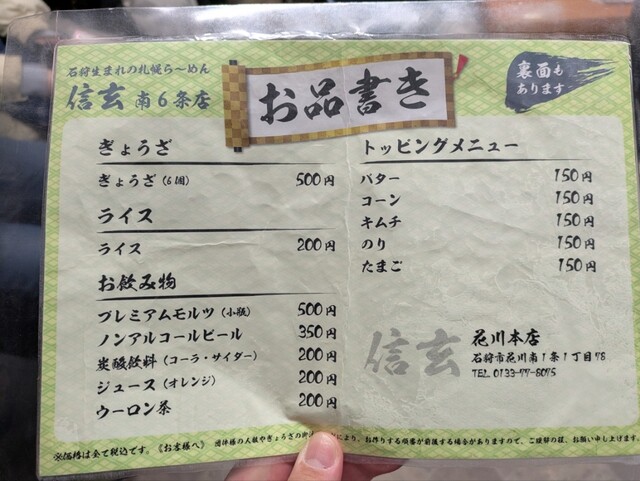 石狩生まれの札幌ら〜めん
信玄 南6条店
お品書き
裏面も
あります
ぎょうざ
ぎょうざ(6個) 500円
ライス
ライス 200円
お飲み物
プレミアムモルツ(小瓶) 500円
ノンアルコールビール 350円
炭酸飲料(コーラ・サイダー) 200円
ジュース(オレンジ) 200円
ウーロン茶 200円
トッピングメニュー
バター 150円
コーン 150円
キムチ 150円
のり 150円
たまご 150円
信玄
花川本店
石狩市花川南1条1丁目78
TEL 0133-77-8075
※価格は全て税込です。《お客様へ》 団体様の人数やぎょうざの により、お作りする順番が前後する場合がありますので、ご理解の程、お願い申し上げます。